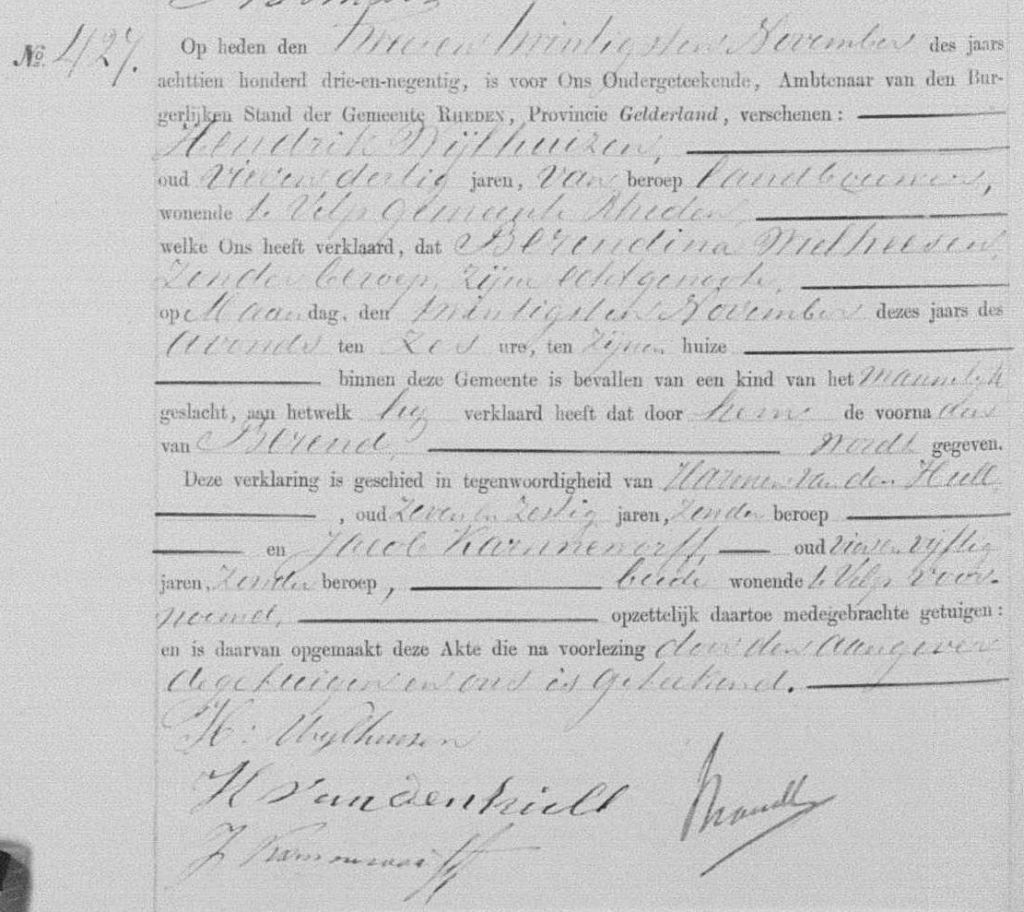 No. 427. Op heden den Tweeen twintigsten November des jaars
achttien honderd drie-en-negentig, is voor Ons Ondergeteekende, Ambtenaar van den Bur-
gerlijken Stand der Gemeente RHEDEN, Provincie Gelderland, verschenen:
Hendrik Wijlhuizen,
oud vierendertig jaren, van beroep landbouwer,
wonende te Velp gemeente Rheden,
welke Ons heeft verklaard, dat Berendina Wielheesen,
zonder beroep, zijne echtgenoote,
op Maandag, den twintigsten November dezes jaars des
avonds ten zes ure, ten zijnen huize
binnen deze Gemeente is bevallen van een kind van het mannelijk
geslacht, aan hetwelk hij verklaard heeft dat door hem de voornaam
van Berend, wordt gegeven.
Deze verklaring is geschied in tegenwoordigheid van Harmen van den Hull,
, oud zevenen zestig jaren, zonder beroep
en Jacob Karnnewerff, oud vierenvijftig
jaren, zonder beroep, beide wonende te Velp voor-
noemd, opzettelijk daartoe medegebrachte getuigen:
en is daarvan opgemaakt deze Akte die na voorlezing door den aangever
de getuigen en ons is geteekend.
H: Wylhuizen
H van den hull
Brandt
J